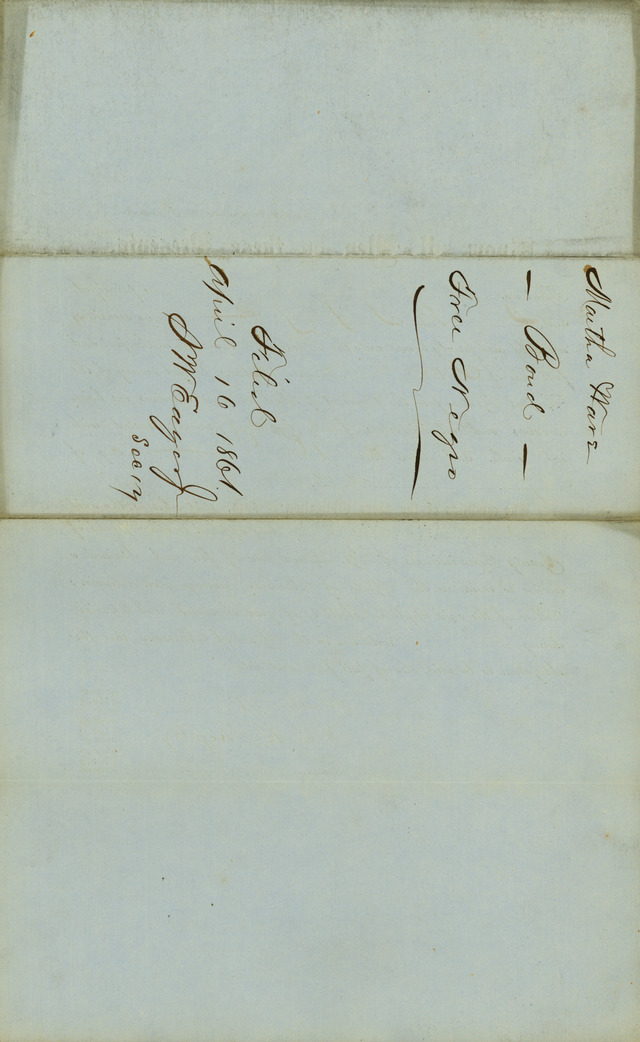 Martha Ware
— Bond —
Free Negro
Filed
April 16 1861
J W Eager